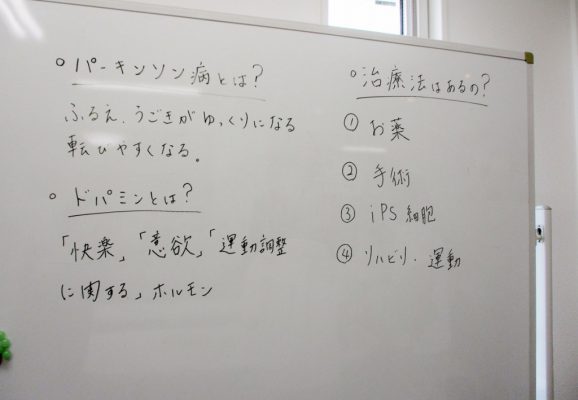 ○ パーキンソン病とは?
ふるえ、うごきがゆっくりになる
転びやすくなる。
○ ドパミンとは?
「快楽」「意欲」「運動調整
に関する」ホルモン
○ 治療法はあるの?
① お薬
② 手術
③ iPS細胞
④ リハビリ・運動